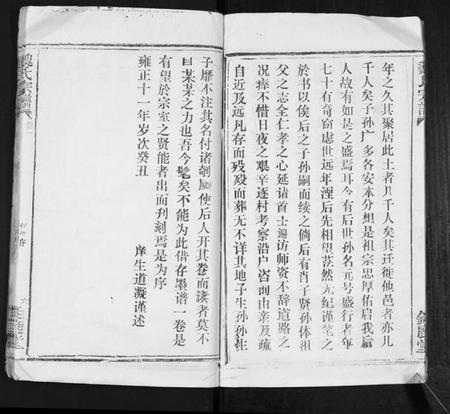 年之久其聚居此土者几千人矣其迁徙他邑者亦几
千人矣子孙广多各安本分想是祖宗忠厚佑启我后
人故有如是之盛焉耳今有后世孙名元号盛行者年
七十有奇窃虑世远年湮后先相望茫然无纪谨笔之
於书以俟后之子孙嗣而续之倘后有肖子贤孙体祖
父之志全仁孝之心延请首士遍访师资不辞道路之
况瘁不惜日夜之艰辛逐村考察沿户咨询由亲及疏
自近及远凡存而殁殁而葬无不详其地子生孙孙生
子靡不注其名付诸剞劂使后人开其卷而读者莫不
曰某某之力也吾今髦矣不能为此借存墨谱一卷是
有望於宗室之贤能者出而刋刻焉是为序
雍正十一年岁次癸丑
庠生道凝谨述
魏氏宗谱